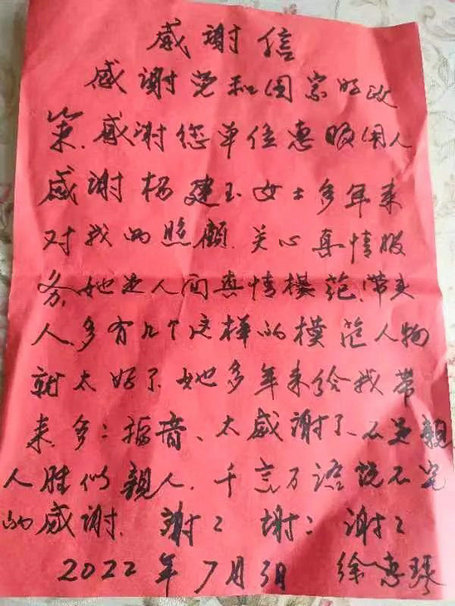 感谢信
感谢党和国家好政
策.感谢您单位惠眼用人
感谢杨建玉女士多年来
对我的照顾.关心真情服
务,她是人间真情模范.带头
人.多有几个这样的模范人物
就太好了.她多年来给我带
来多:福音、太感谢了.不是親
人胜似親人.千言万语说不完
的感谢.谢:谢:谢:
2022年7月3日 徐惠琴